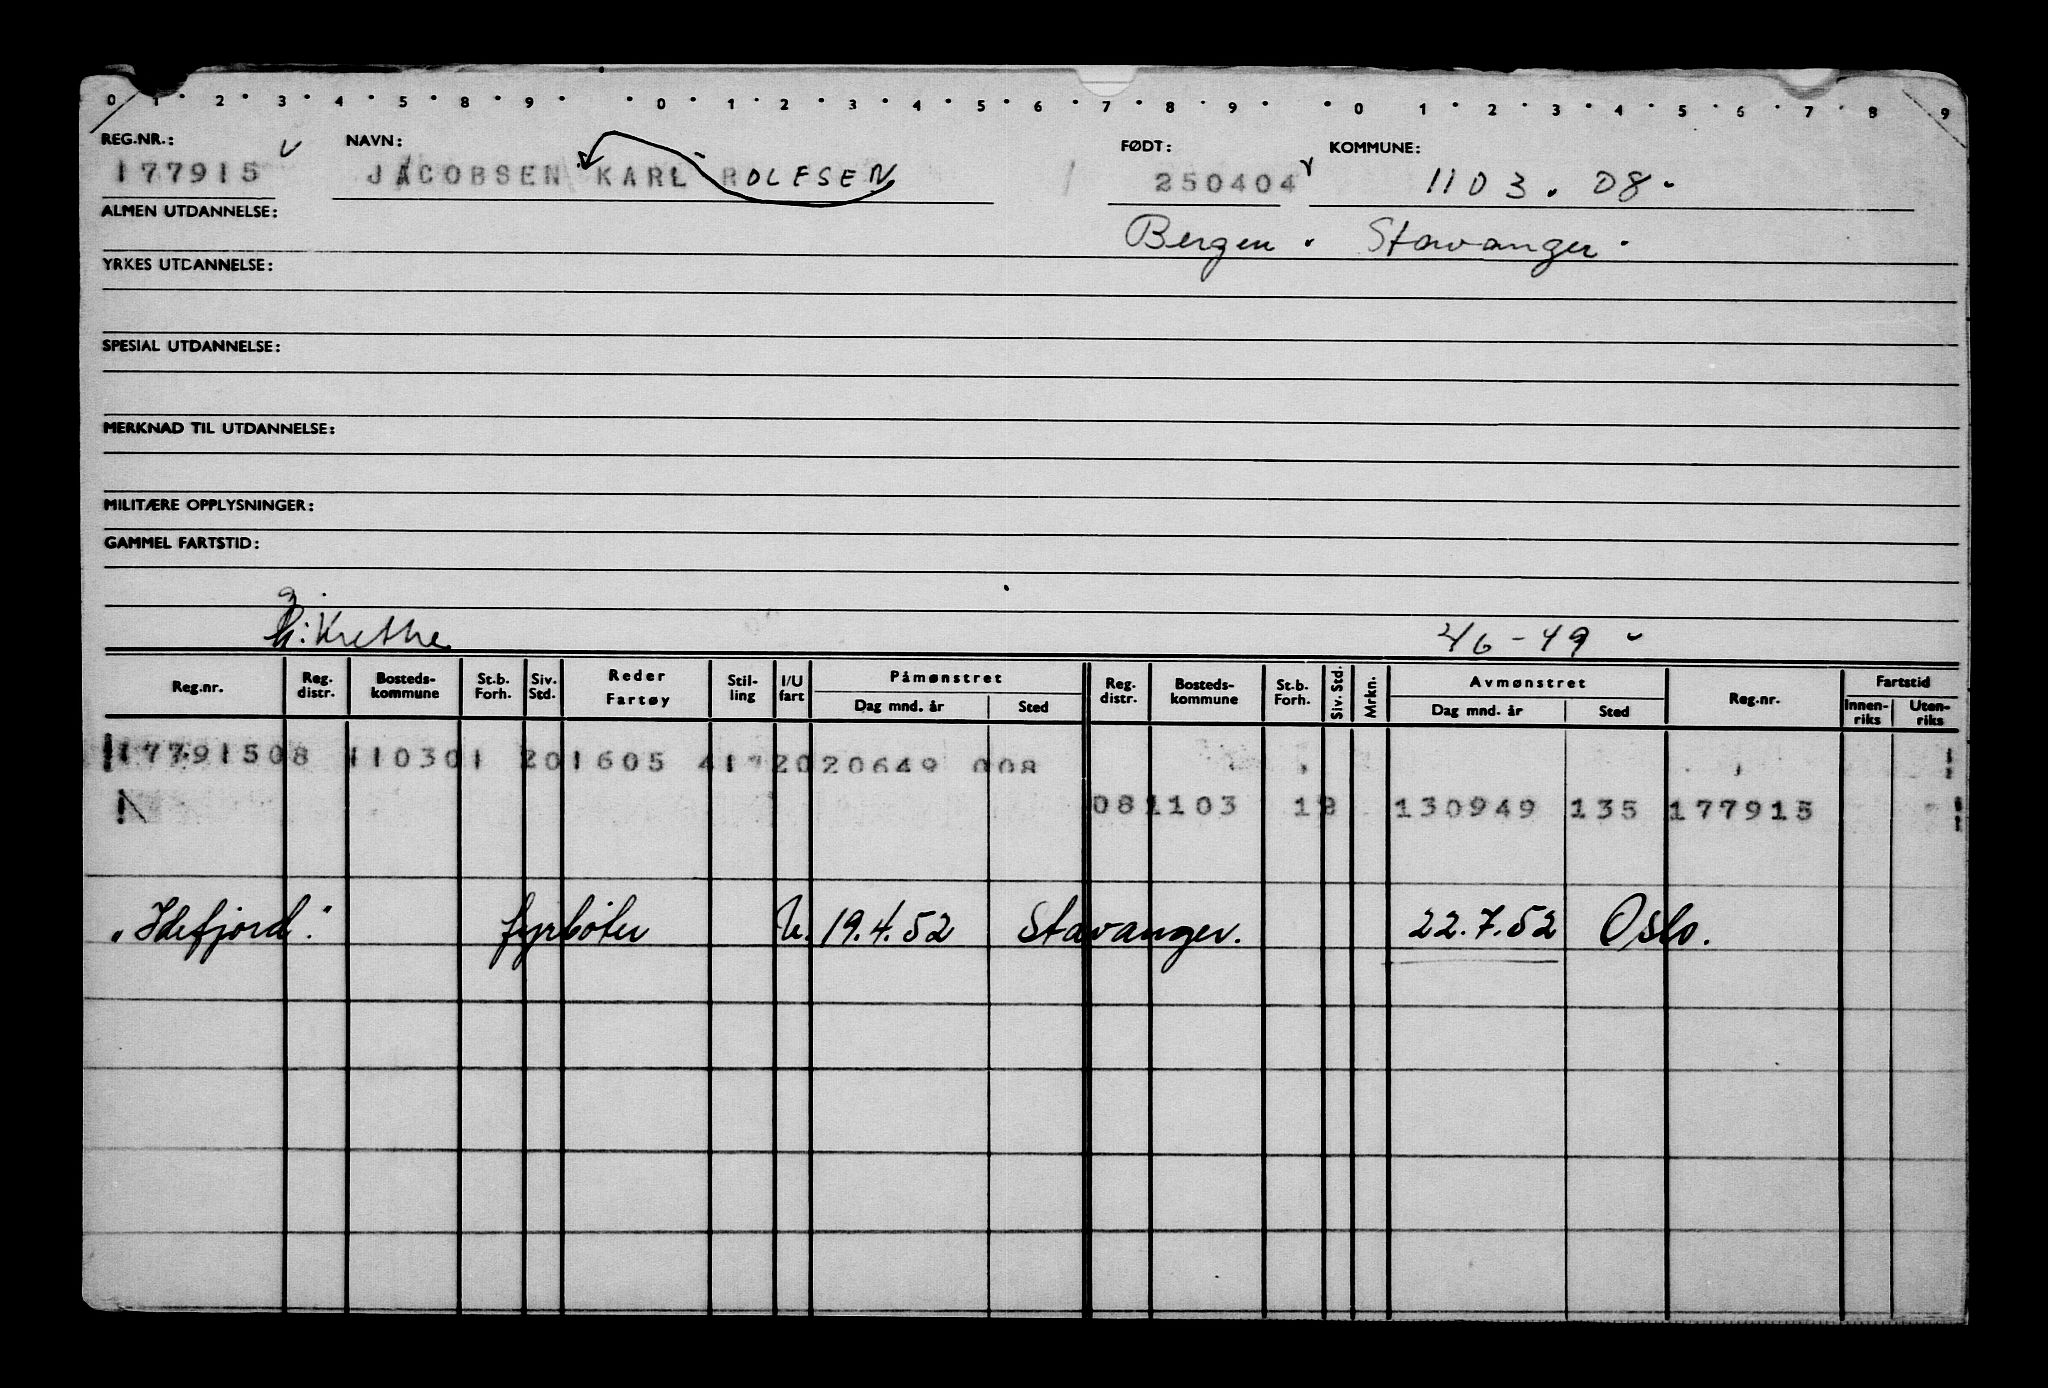 0 1 2 3 4 5 8 9 0 1 2 3 4 5 6 7 8 9 0 1 2 3 4 5 6 7 8 9
REG.NR.: NAVN: FØDT: KOMMUNE:
177915 JACOBSEN KARL ROLFSEN 250404 1103.08.
ALMEN UTDANNELSE: Bergen. Stavanger.
YRKES UTDANNELSE:
SPESIAL UTDANNELSE:
MERKNAD TIL UTDANNELSE:
MILITÆRE OPPLYSNINGER:
GAMMEL FARTSTID:
Krethe 2/6-49
Reg.nr. Reg. distr. Bosteds-kommune St.b. Forh. Siv. Std. Reder Fartøy Stil-ling I/U fart Påmønstret Dag mnd. år Sted Reg. distr. Bosteds-kommune St.b. Forh. Siv. Std. Mrkn. Avmønstret Dag mnd. år Sted Reg.nr. Fartstid Innen-riks Uten-riks
17791508 110301 201605 020649 008
081103 130949 135 177915
„Idefjord". fyrbøter U. 19.4.52 Stavanger. 22.7.52 Oslo.